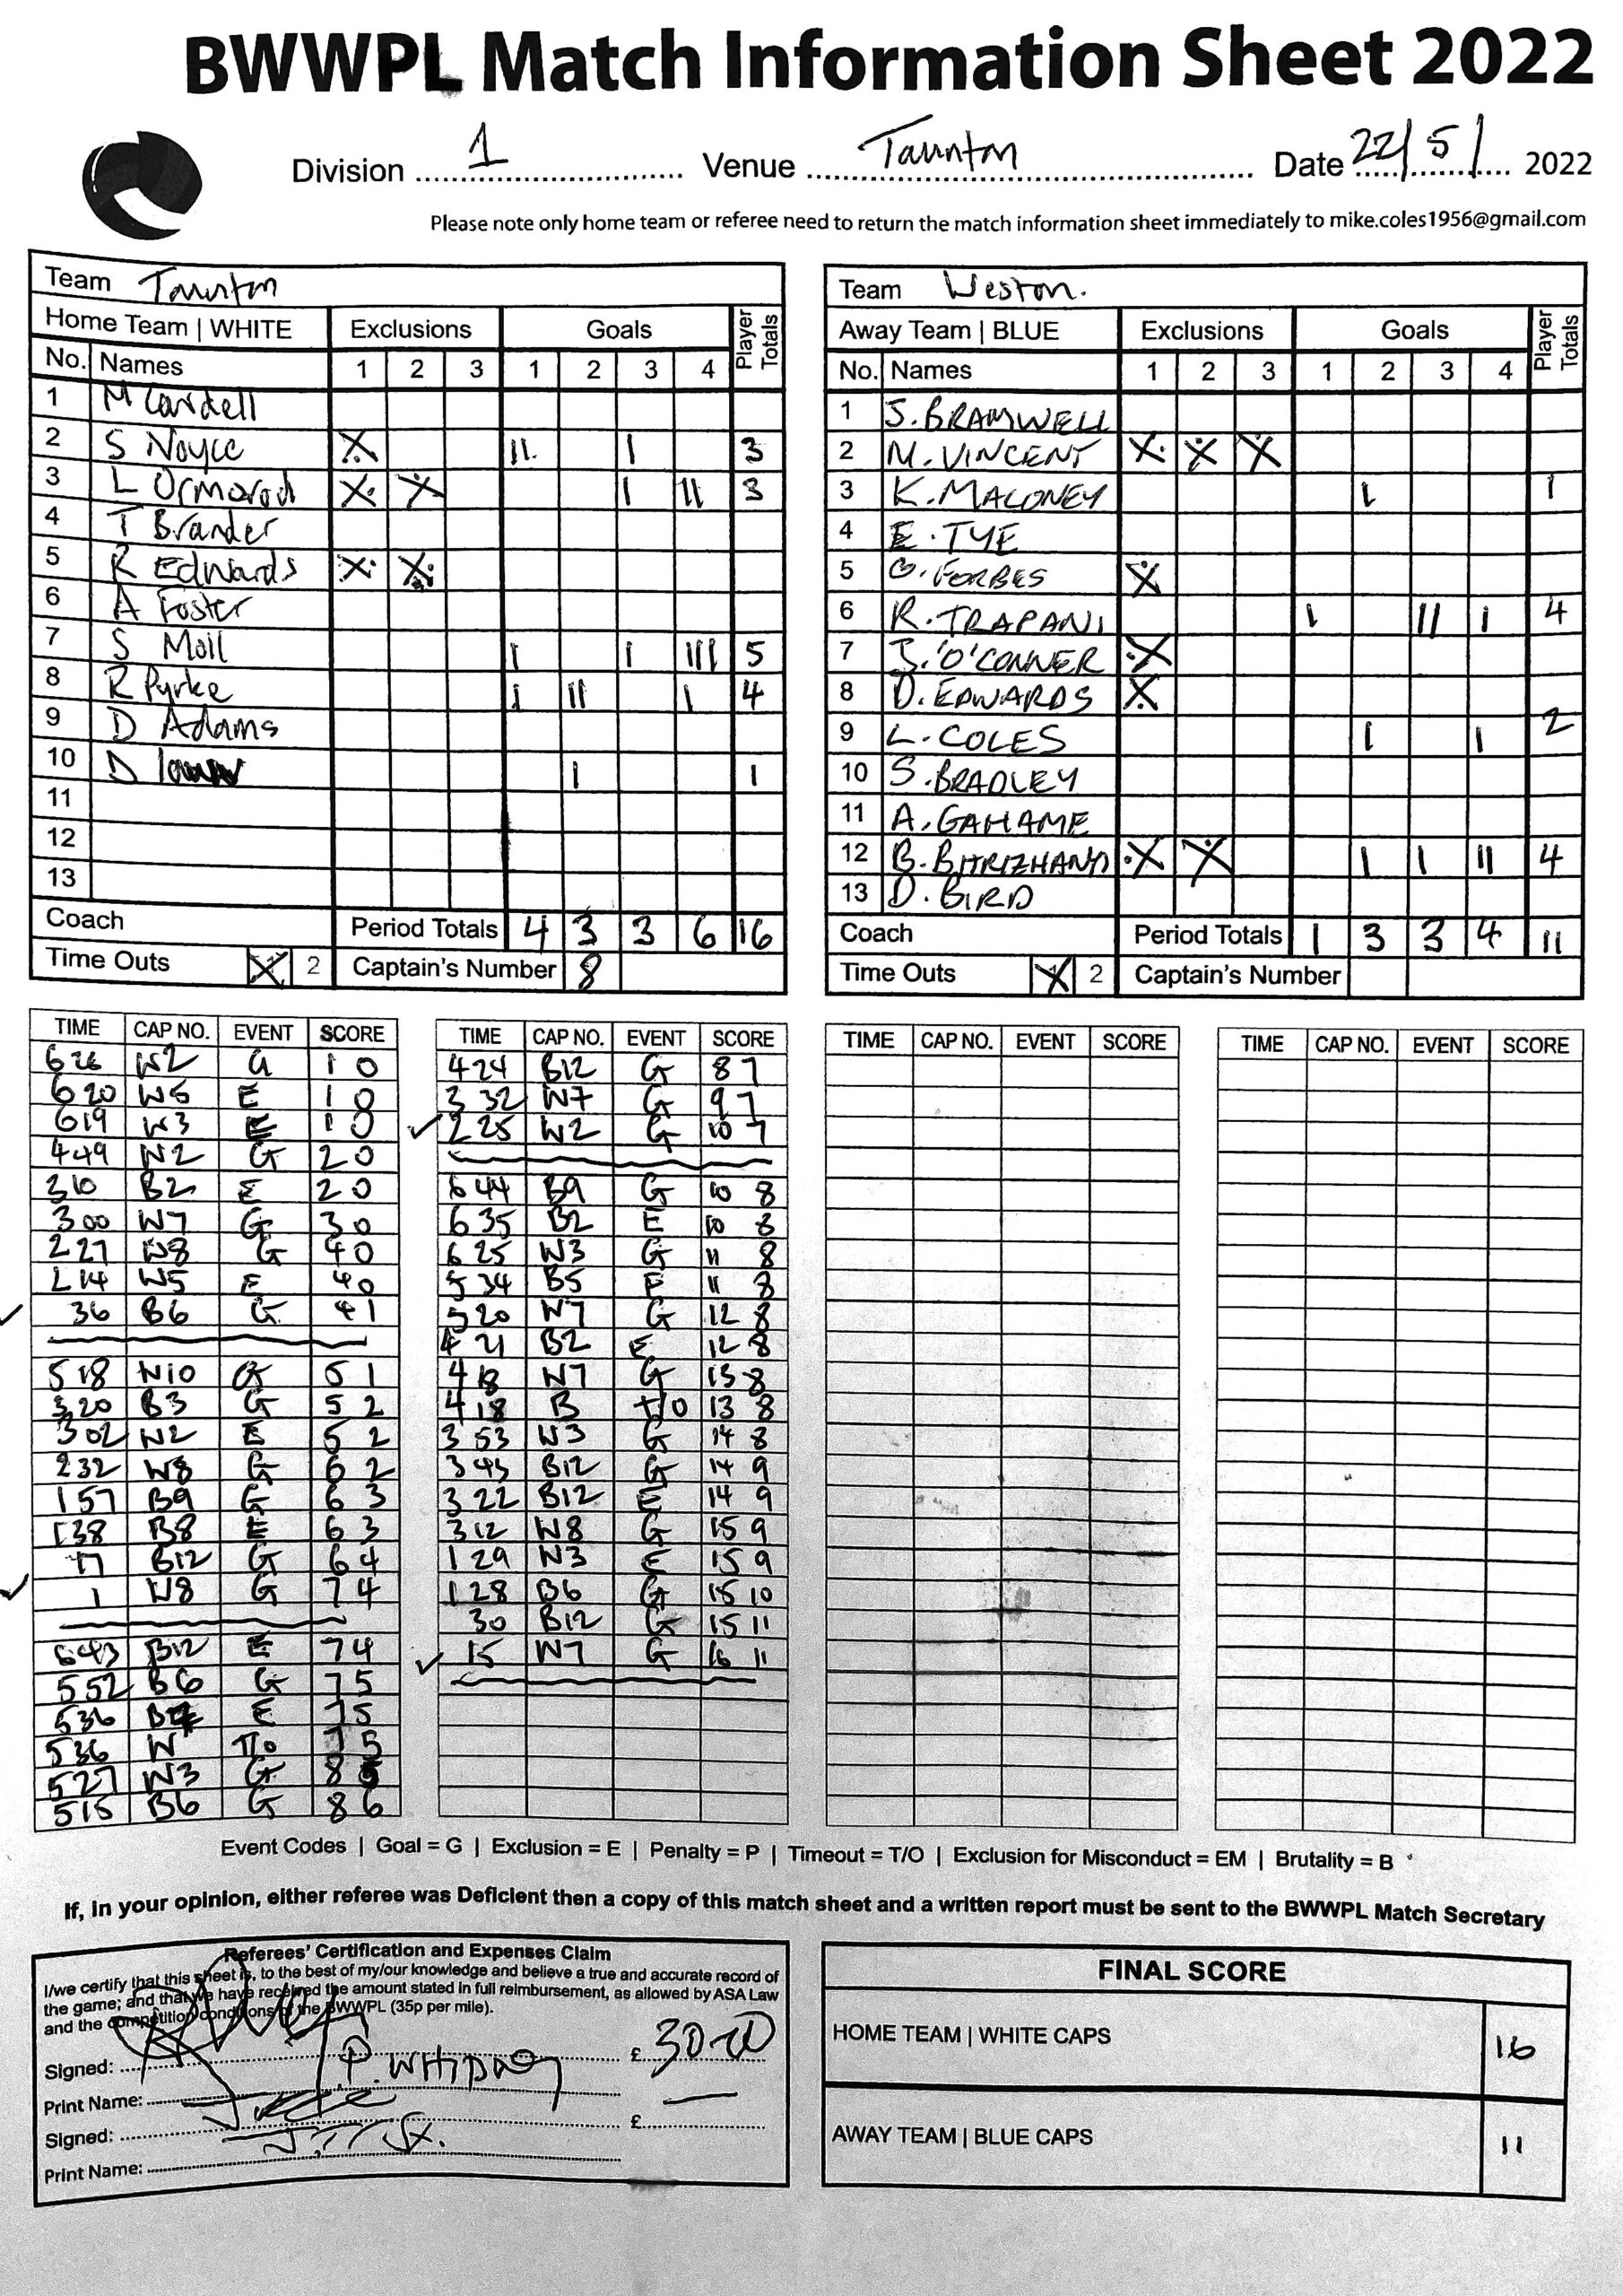 BWWPL Match Information Sheet 2022
Division 1 Venue Taunton Date 22/5/ 2022
Please note only home team or referee need to return the match information sheet immediately to mike.coles1956@gmail.com
Team Taunton
Home Team | WHITE Exclusions Goals Player Totals
No. Names 1 2 3 1 2 3 4
1 M Cardell
2 S Noyce X II I 3
3 L Ormorod X X I II 3
4 T Brander
5 R Edwards X X
6 A Foster
7 S Moll I I III 5
8 R Pyrke I II I 4
9 D Adams
10 D I 1
11
12
13
Coach Period Totals 4 3 3 6 16
Time Outs X 2 Captain's Number 8
Team Weston.
Away Team | BLUE Exclusions Goals Player Totals
No. Names 1 2 3 1 2 3 4
1 S. BRAMWELL
2 M. VINCENT X X X
3 K. MALONEY I 1
4 E. TYE
5 G. FORBES X
6 R. TRAPANI I II I 4
7 J. 'O'CONNER X
8 D. EDWARDS X
9 L. COLES I I 2
10 S. BRADLEY
11 A. GAHAME
12 B. X X I I II 4
13 D. BIRD
Coach Period Totals 1 3 3 4 11
Time Outs X 2 Captain's Number
TIME CAP NO. EVENT SCORE
626 W2 G 1 0
620 W5 E 1 0
619 W3 E 1 0
449 W2 G 2 0
310 B2 E 2 0
300 W7 G 3 0
227 W8 G 4 0
214 W5 E 4 0
36 B6 G 4 1
518 W10 G 5 1
320 B3 G 5 2
302 W2 E 5 2
232 W8 G 6 2
157 B9 G 6 3
138 B8 E 6 3
17 B12 G 6 4
1 W8 G 7 4
643 B12 E 7 4
552 B6 G 7 5
536 B7 E 7 5
536 W T/o 7 5
527 W3 G 8 5
515 B6 G 8 6
TIME CAP NO. EVENT SCORE
424 B12 G 8 7
332 W7 G 9 7
225 W2 G 10 7
644 B9 G 10 8
635 B2 E 10 8
625 W3 G 11 8
534 B5 E 11 8
520 W7 G 12 8
421 B2 E 12 8
418 W7 G 13 8
418 B t/o 13 8
353 W3 G 14 8
345 B12 G 14 9
322 B12 E 14 9
312 W8 G 15 9
129 W3 E 15 9
128 B6 G 15 10
30 B12 G 15 11
15 W7 G 16 11
TIME CAP NO. EVENT SCORE
TIME CAP NO. EVENT SCORE
Event Codes | Goal = G | Exclusion = E | Penalty = P | Timeout = T/O | Exclusion for Misconduct = EM | Brutality = B
If, in your opinion, either referee was Deficient then a copy of this match sheet and a written report must be sent to the BWWPL Match Secretary
Referees' Certification and Expenses Claim
I/we certify that this sheet is, to the best of my/our knowledge and believe a true and accurate record of
the game; and that we have received the amount stated in full reimbursement, as allowed by ASA Law
and the competition conditions of the BWWPL (35p per mile).
Signed: £ 30-00
Print Name: P.
Signed: £ —
Print Name:
FINAL SCORE
HOME TEAM | WHITE CAPS 16
AWAY TEAM | BLUE CAPS 11